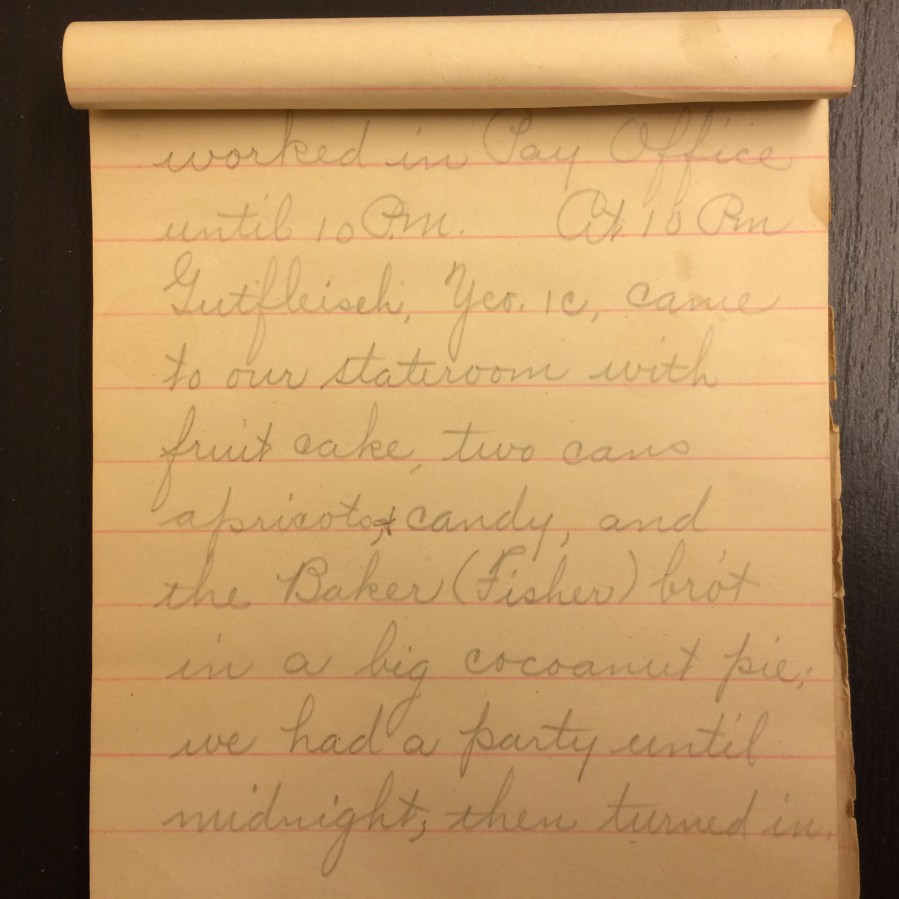 worked in Pay Office
until 10 P.M. At 10 Pm
Gutfleisch, Yeo. 1c, came
to our stateroom with
fruit cake, two cans
apricots, & candy, and
the Baker (Fisher) bro't
in a big cocoanut pie;
we had a party until
midnight, then turned in.